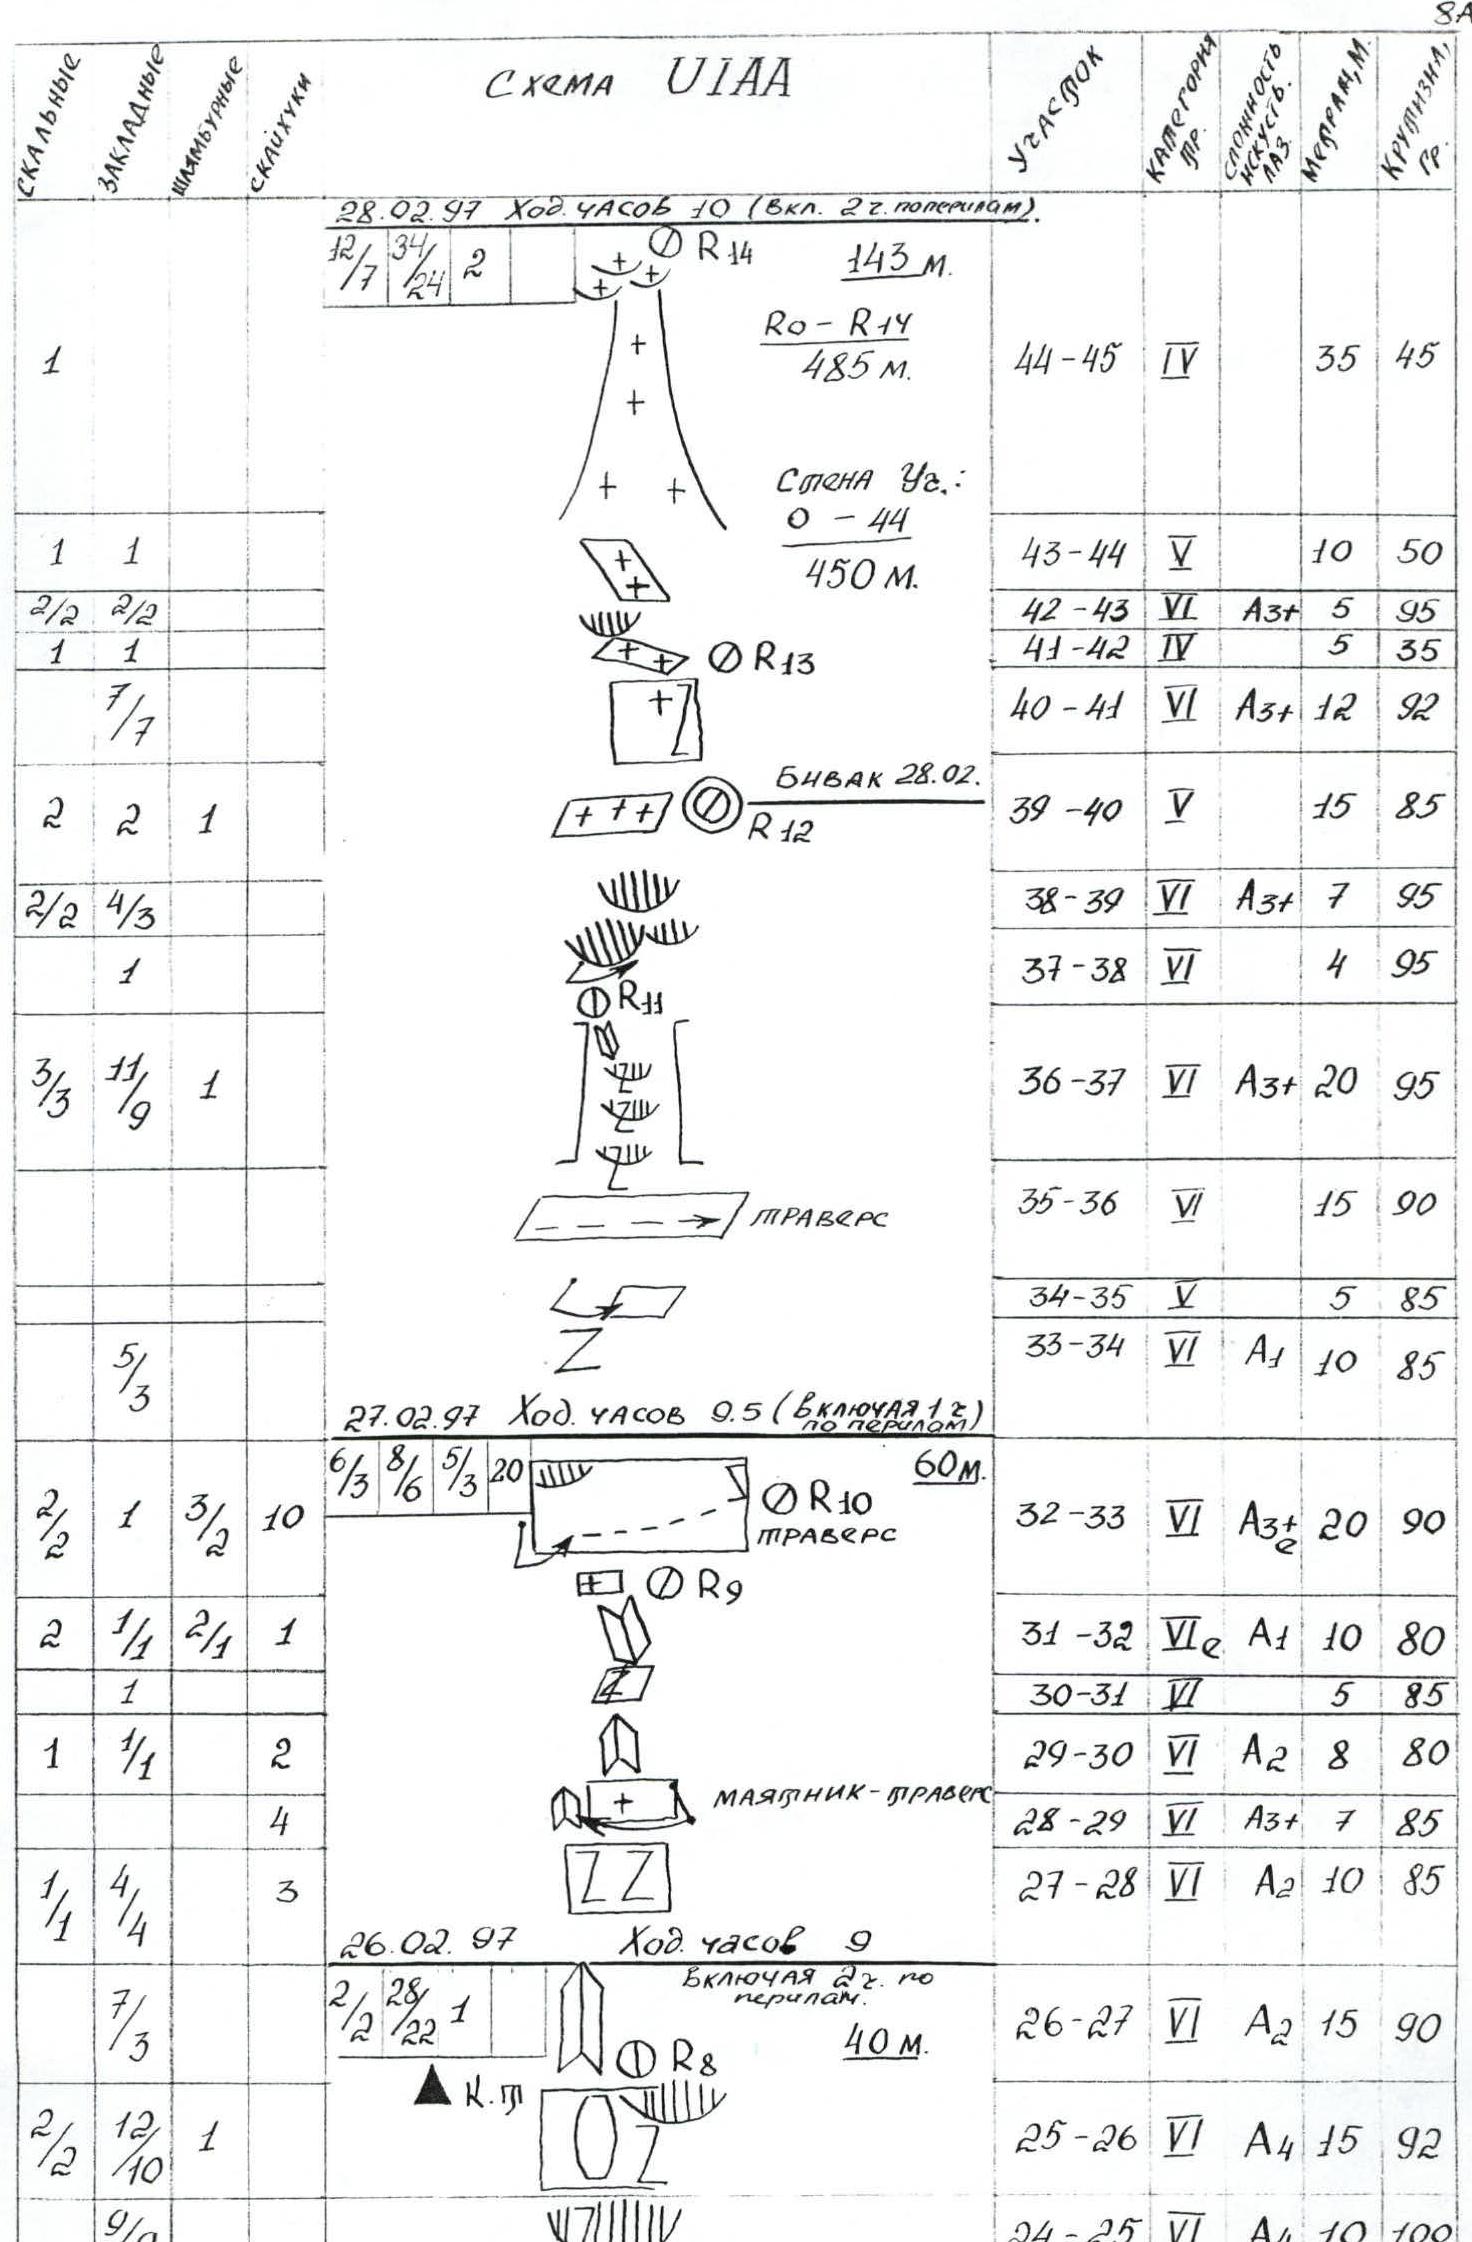 8А
СКАЛЬНЫЕ ЗАКЛАДНЫЕ ШЛЯМБУРНЫЕ СКАЙХУКИ Схема UIAA УЧАСТОК КАТЕГОРИЯ ТР. СЛОЖНОСТЬ ИСКУССТВ. ЛАЗ. МЕТРАЖ, М. КРУТИЗНА, ГР.
28.02.97 Ход. ЧАСОВ 10 (Вкл. 2 ч. по перилам).
12/7 34/24 2 R14 143 м.
R0 - R14
485 м.
1 44-45 IV 35 45
Стена Уч.:
0 - 44
450 м.
1 1 43-44 V 10 50
2/2 2/2 42-43 VI А3+ 5 95
1 1 R13 41-42 IV 5 35
7/7 40-41 VI А3+ 12 92
БИВАК 28.02.
2 2 1 R12 39-40 V 15 85
2/2 4/3 38-39 VI А3+ 7 95
1 37-38 VI 4 95
R11
3/3 11/9 1 36-37 VI А3+ 20 95
траверс 35-36 VI 15 90
34-35 V 5 85
5/3 33-34 VI А1 10 85
27.02.97 Ход. ЧАСОВ 9.5 (включая 1 ч
по перилам)
6/3 8/6 5/3 20 60 м.
2/2 1 3/2 10 R10 32-33 VI А3+e 20 90
траверс
R9
2 1/1 2/1 1 31-32 VIe А1 10 80
1 30-31 VI 5 85
1 1/1 2 29-30 VI А2 8 80
МАЯТНИК-ТРАВЕРС
4 28-29 VI А3+ 7 85
1/1 4/4 3 27-28 VI А2 10 85
26.02.97 Ход. часов 9
включая 2 ч. по
перилам.
2/2 28/22 1 40 м.
7/3 26-27 VI А2 15 90
R8
К.Т
2/2 12/10 1 25-26 VI А4 15 92
24-25 VI А4 10 100